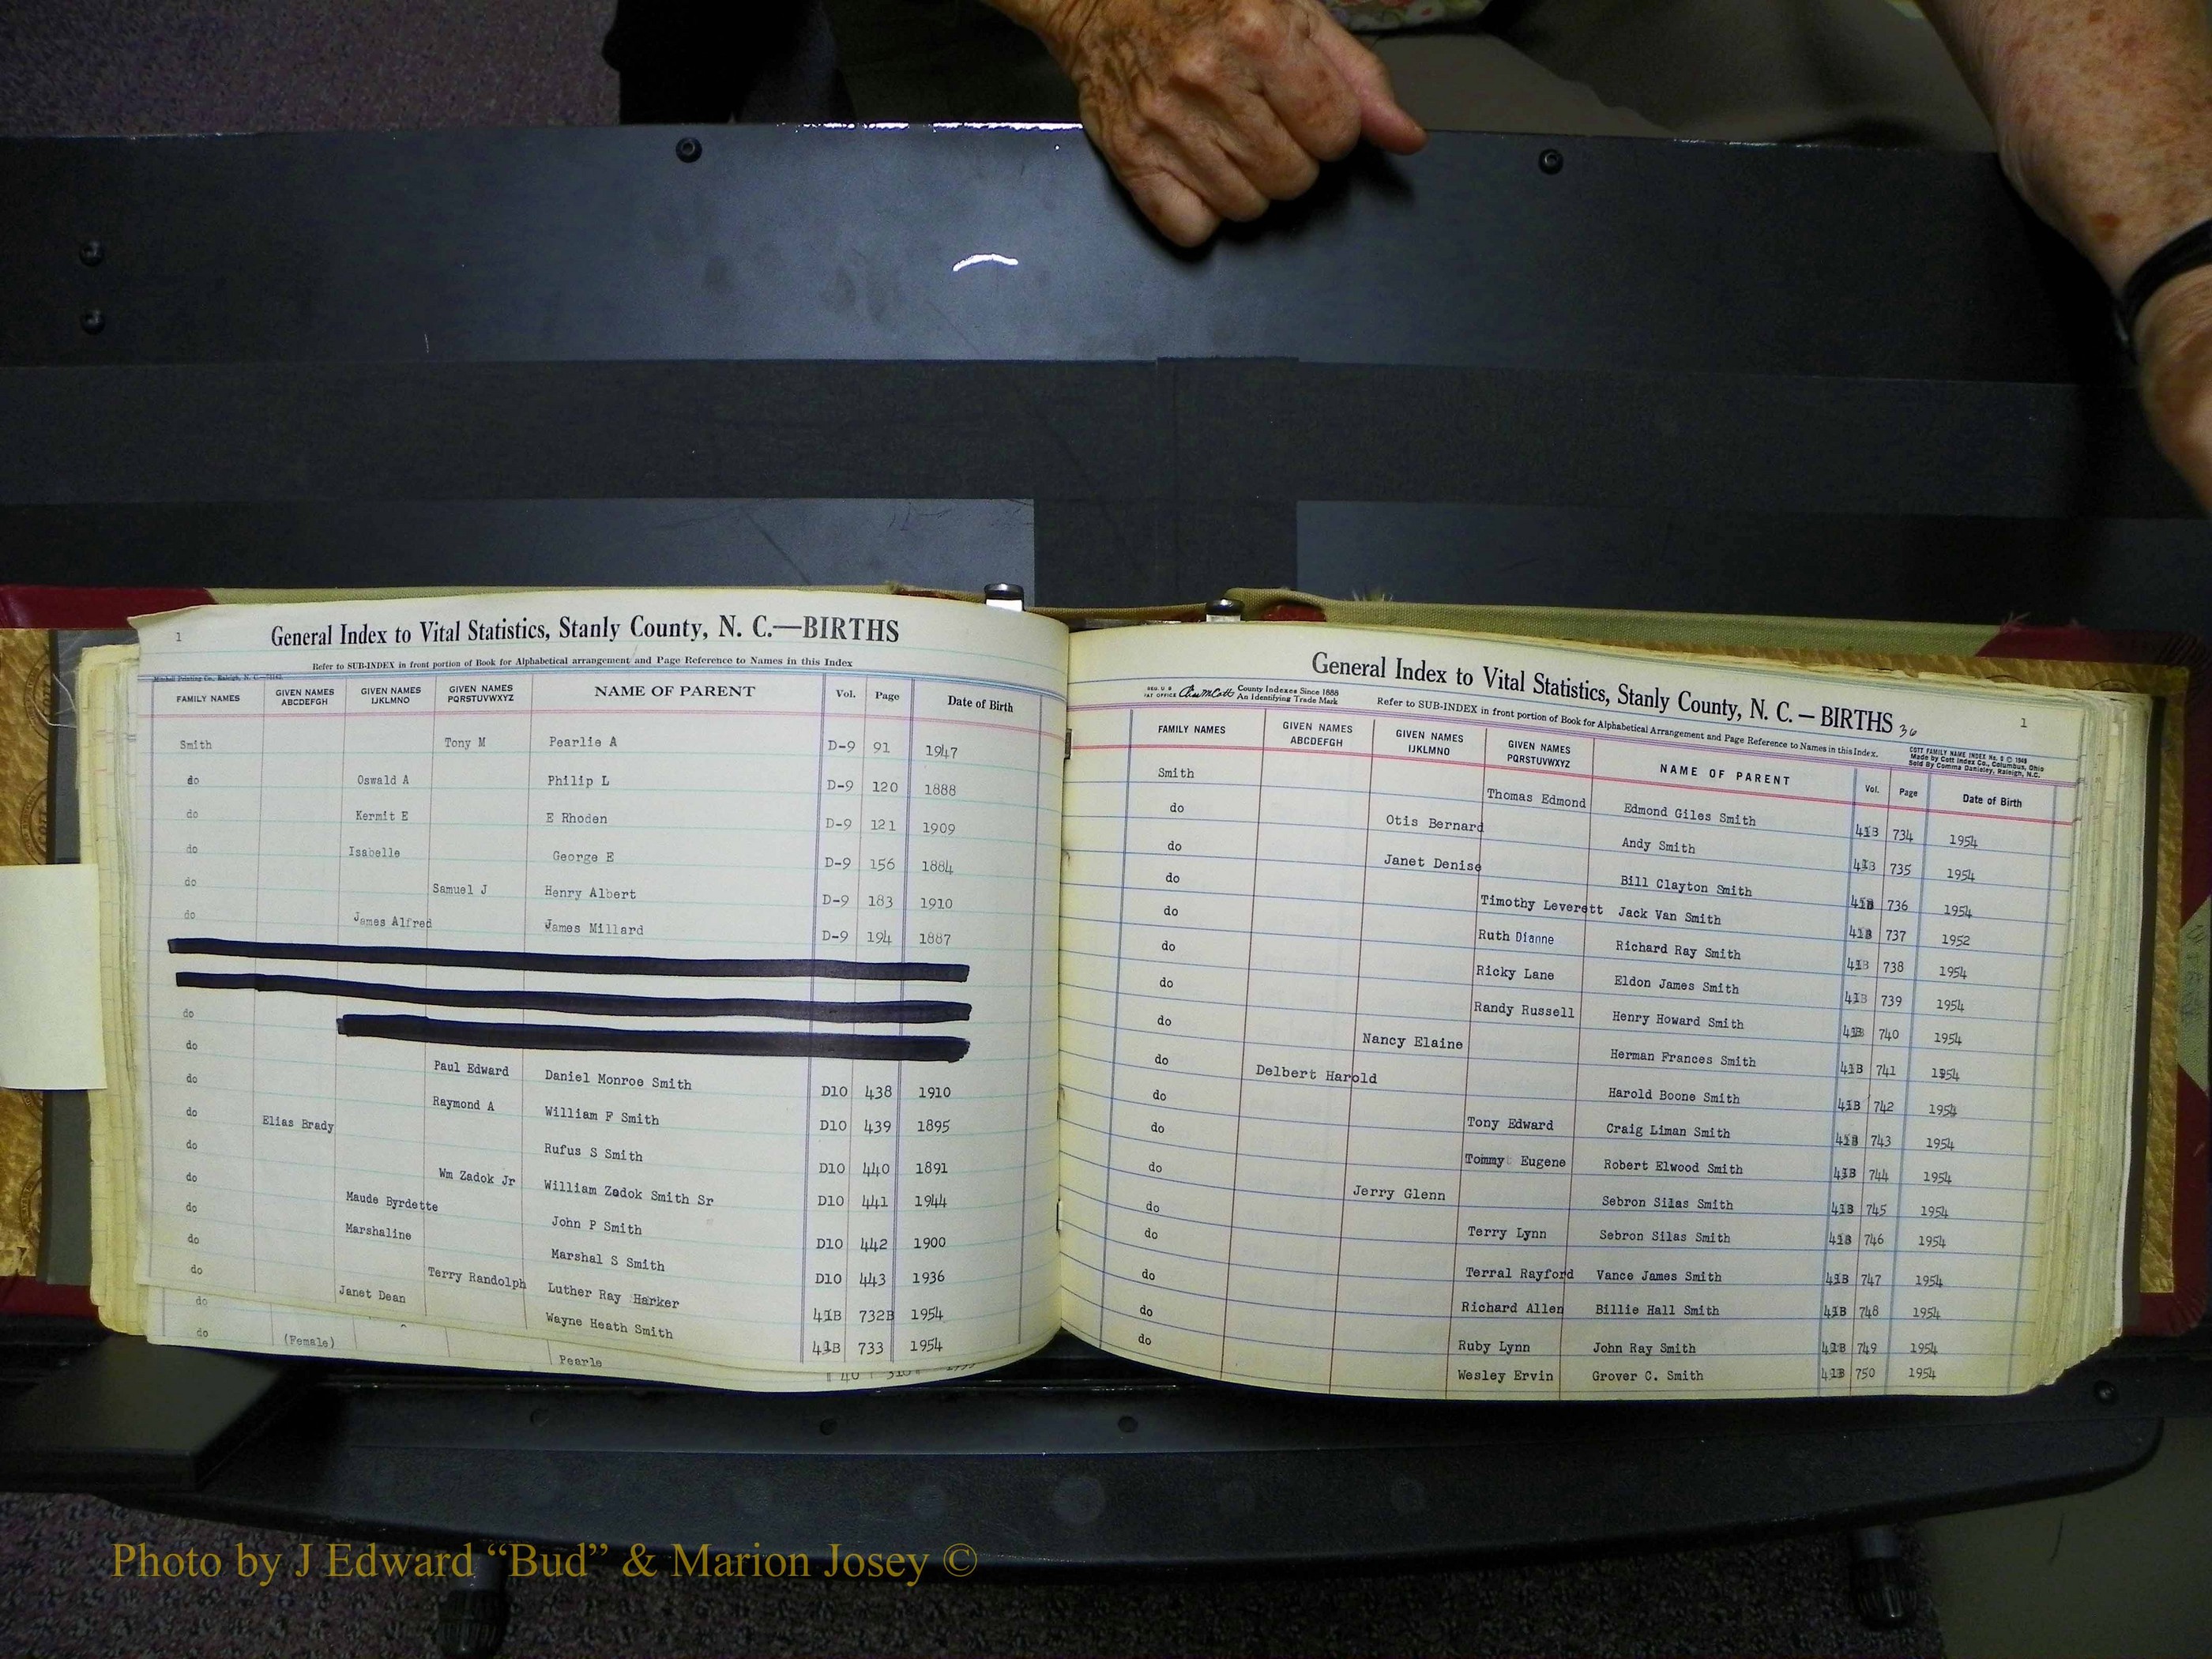 1
General Index to Vital Statistics, Stanly County, N. C.—BIRTHS
Refer to SUB-INDEX in front portion of Book for Alphabetical arrangement and Page Reference to Names in this Index
Mitchell Printing Co., Raleigh, N. C.
FAMILY NAMES GIVEN NAMES ABCDEFGH GIVEN NAMES IJKLMNO GIVEN NAMES PQRSTUVWXYZ NAME OF PARENT Vol. Page Date of Birth
Smith Tony M Pearlie A D-9 91 1947
do Oswald A Philip L D-9 120 1888
do Kermit E E Rhoden D-9 121 1909
do Isabelle George E D-9 156 1884
do Samuel J Henry Albert D-9 183 1910
do James Alfred James Millard D-9 194 1887
do
do Paul Edward Daniel Monroe Smith D10 438 1910
do Raymond A William F Smith D10 439 1895
do Elias Brady Rufus S Smith D10 440 1891
do Wm Zadok Jr William Zadok Smith Sr D10 441 1944
do Maude Byrdette John P Smith D10 442 1900
do Marshaline Marshal S Smith D10 443 1936
do Terry Randolph Luther Ray Harker 41B 732B 1954
do Janet Dean Wayne Heath Smith 41B 733 1954
do
do (Female) Pearle
General Index to Vital Statistics, Stanly County, N. C. — BIRTHS 36 1
County Indexes Since 1888
An Identifying Trade Mark
Refer to SUB-INDEX in front portion of Book for Alphabetical Arrangement and Page Reference to Names in this Index.
Made by Cott Index Co., Columbus, Ohio
FAMILY NAMES GIVEN NAMES ABCDEFGH GIVEN NAMES IJKLMNO GIVEN NAMES PQRSTUVWXYZ NAME OF PARENT Vol. Page Date of Birth
Smith Thomas Edmond Edmond Giles Smith 41B 734 1954
do Otis Bernard Andy Smith 41B 735 1954
do Janet Denise Bill Clayton Smith 41B 736 1954
do Timothy Leverett Jack Van Smith 41B 737 1952
do Ruth Dianne Richard Ray Smith 41B 738 1954
do Ricky Lane Eldon James Smith 41B 739 1954
do Randy Russell Henry Howard Smith 41B 740 1954
do Nancy Elaine Herman Frances Smith 41B 741 1954
do Delbert Harold Harold Boone Smith 41B 742 1954
do Tony Edward Craig Liman Smith 41B 743 1954
do Tommy Eugene Robert Elwood Smith 41B 744 1954
do Jerry Glenn Sebron Silas Smith 41B 745 1954
do Terry Lynn Sebron Silas Smith 41B 746 1954
do Terral Rayford Vance James Smith 41B 747 1954
do Richard Allen Billie Hall Smith 41B 748 1954
do Ruby Lynn John Ray Smith 41B 749 1954
do Wesley Ervin Grover C. Smith 41B 750 1954
Photo by J Edward “Bud” & Marion Josey ©